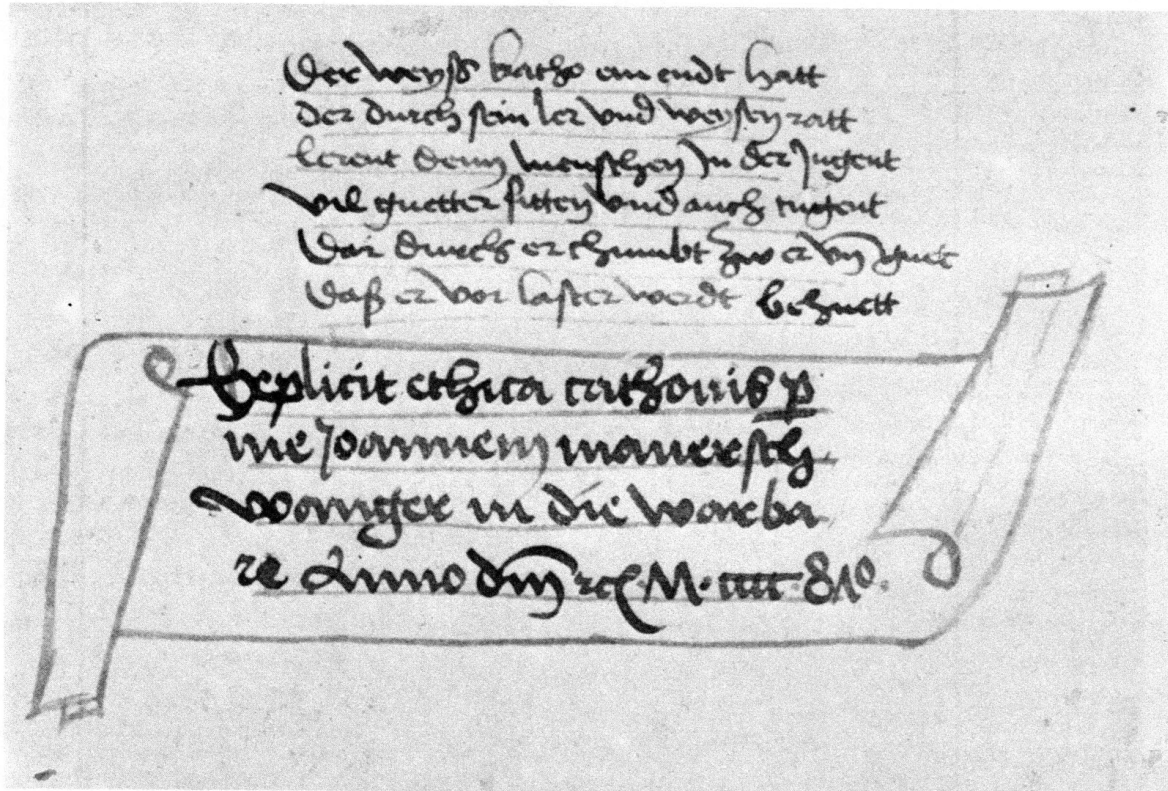 Der weyss katho ein endt hatt
der durch sein ler vnd weysen ratt
lerent denn menschen Jn der Jugent
vil guetter sitten vnd auch tugent
Dar durch er chumbt zw er vn̄ guet
Dasz er vor laster werdt behuett
Explicit ethica cathonis ꝑ
me Joannem mauersch
wanger in die warba
re Anno dm̄ ⁊cͣ. M. cccc 81º.